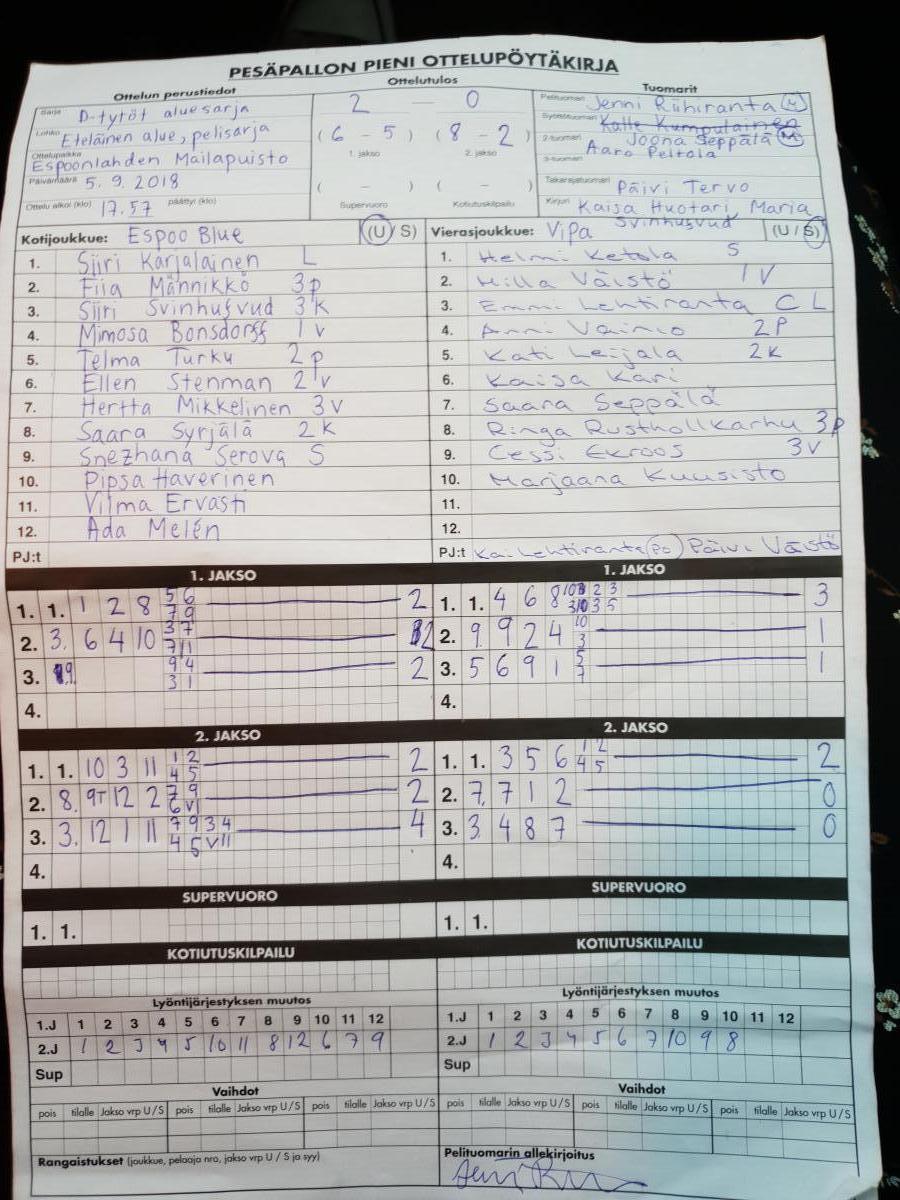 PESÄPALLON PIENI OTTELUPÖYTÄKIRJA
Ottelun perustiedot
Sarja D-tytöt aluesarja
Lohko Eteläinen alue, pelisarja
Ottelupaikka Espoonlahden Mailapuisto
Päivämäärä 5.9.2018
Ottelu alkoi (klo) 17.57 päättyi (klo)
Ottelutulos
2 — 0
(6 – 5) (8 – 2)
1. jakso 2. jakso
( – ) ( – )
Supervuoro Kotiutuskilpailu
Tuomarit
Pelituomari Jenni Riihiranta
Syöttötuomari Kalle Kumpulainen
2-tuomari Joona Seppälä
3-tuomari Aaro Peltola
Takarajatuomari Päivi Tervo
Kirjuri Kaisa Huotari, Maria Svinhufvud
Kotijoukkue: Espoo Blue (U / S)
1. Siiri Karjalainen L
2. Fiia Männikkö 3p
3. Siiri Svinhufvud 3k
4. Mimosa Bonsdorff 1v
5. Telma Turku 2p
6. Ellen Stenman 2v
7. Hertta Mikkelinen 3v
8. Saara Syrjälä 2k
9. Snezhana Serova S
10. Pipsa Haverinen
11. Vilma Ervasti
12. Ada Melén
PJ:t
Vierasjoukkue: Vipa (U / S)
1. Helmi Ketola S
2. Hilla Väistö 1V
3. Emmi Lehtiranta C L
4. Anni Vainio 2P
5. Kati Leijala 2K
6. Kaisa Kari
7. Saara Seppälä
8. Ringa Rusthollkarhu 3p
9. Cessi Ekroos 3v
10. Marjaana Kuusisto
11.
12.
PJ:t Kai Lehtiranta (PO) Päivi Väistö
1. JAKSO
1. 1. 1 2 8 5 6 7 9 2
2. 3. 6 4 10 3 7 7 11 2
3. 9 4 3 1 2
4.
1. JAKSO
1. 1. 4 6 8 3
2. 9. 9 2 4 10 3 1
3. 5 6 9 1 1
4.
2. JAKSO
1. 1. 10 3 11 1 2 4 5 2
2. 8. 9T 12 2 7 9 6 VI 2
3. 3. 12 1 11 7 9 3 4 4 5 VII 4
4.
2. JAKSO
1. 1. 3 5 6 1 2 4 5 2
2. 7. 7 1 2 0
3. 3. 4 8 7 0
4.
SUPERVUORO
1. 1.
SUPERVUORO
1. 1.
KOTIUTUSKILPAILU
KOTIUTUSKILPAILU
Lyöntijärjestyksen muutos
1.J 1 2 3 4 5 6 7 8 9 10 11 12
2.J 1 2 3 4 5 10 11 8 12 6 7 9
Sup
Lyöntijärjestyksen muutos
1.J 1 2 3 4 5 6 7 8 9 10 11 12
2.J 1 2 3 4 5 6 7 10 9 8
Sup
Vaihdot
pois tilalle Jakso vrp U / S pois tilalle Jakso vrp U / S pois tilalle Jakso vrp U / S
Vaihdot
pois tilalle Jakso vrp U / S pois tilalle Jakso vrp U / S pois tilalle Jakso vrp U / S
Rangaistukset (joukkue, pelaaja nro, jakso vrp U / S ja syy)
Pelituomarin allekirjoitus